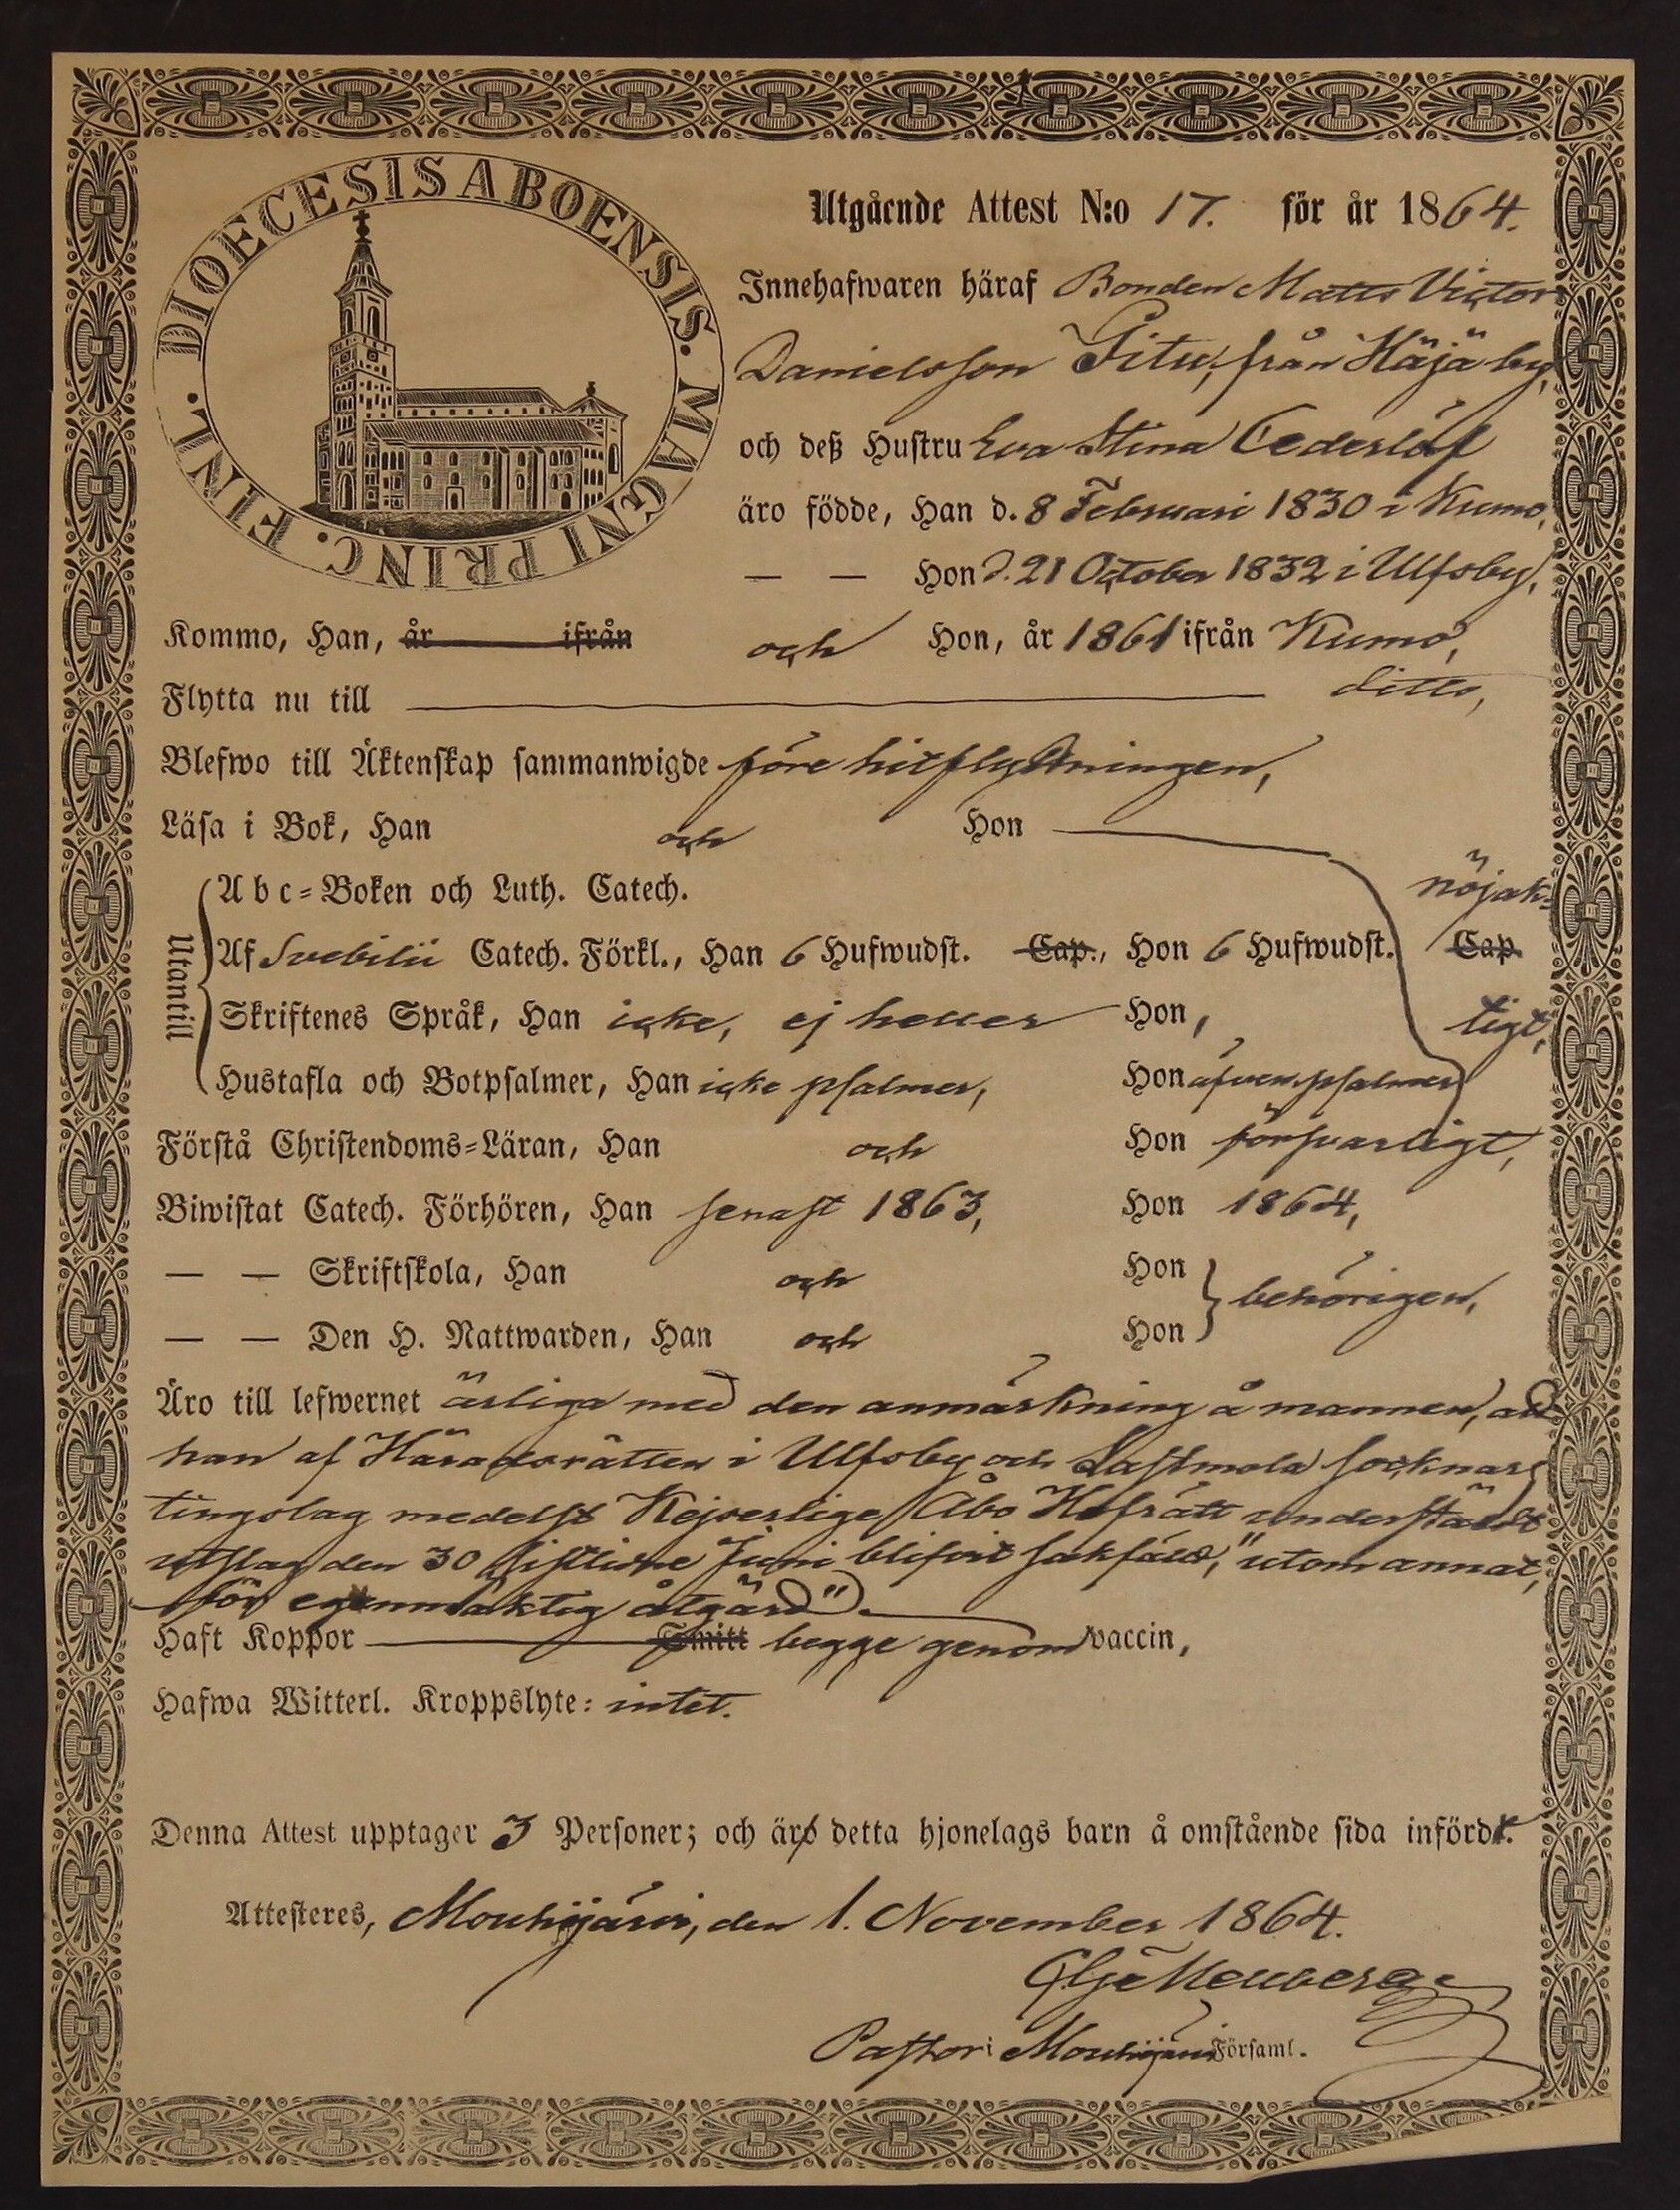 DIOECESIS ABOENSIS. MAGNI PRINC. FINL.
Utgående Attest N:o 17. för år 1864.
Innehafwaren häraf Bonden Matts Victor
Danielsson Pitu, från Häjä by,
och deß Hustru Eva Stina Cederlöf
äro födde, Han d. 8 Februari 1830 i Kumo,
— — Hon d. 21 October 1832 i Ulfsby,
Kommo, Han, år ifrån och Hon, år 1861 ifrån Kumo,
Flytta nu till ditto,
Blefwo till Äktenskap sammanwigde före hitflyttningen,
Läsa i Bok, Han och Hon
Utantill
Abc-Boken och Luth. Catech. nöjak-
Af Svebilii Catech. Förkl., Han 6 Hufwudst. Cap., Hon 6 Hufwudst. Cap.
Skriftenes Språk, Han icke, ej heller Hon, tigt,
Hustafla och Botpsalmer, Han icke psalmer, Hon äfven psalmer
Förstå Christendoms-Läran, Han och Hon försvarligt,
Biwistat Catech. Förhören, Han senast 1863, Hon 1864,
— — Skriftskola, Han och Hon
behörigen,
— — Den H. Nattwarden, Han och Hon
Äro till lefwernet ärliga med den anmärkning å mannen, att
han af Häradsrätten i Ulfsby och Lastmola socknars
tingslag medelst Kejserlige Åbo Hofrätt understäldt
utslag den 30 sistlidne Juni blifvit sakfäld, "utom annat,
för egenmäktig åtgärd".
Haft Koppor Smitt begge genom vaccin,
Hafwa Witterl. Kroppslyte: intet.
Denna Attest upptager 3 Personer; och äro detta hjonelags barn å omstående sida infördt.
Attesteres, Mouhijärvi, den 1. November 1864.
Pastor i Mouhijärvi Församl.